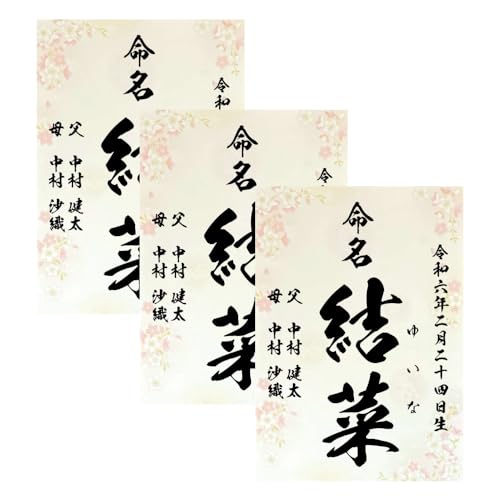 命名
令和
結
菜
父 中村 健太
母 中村 沙織
命名
令
結
菜
父 中村 健太
母 中村 沙織
命名
令和六年二月二十四日生
ゆいな
結菜
父 中村 健太
母 中村 沙織